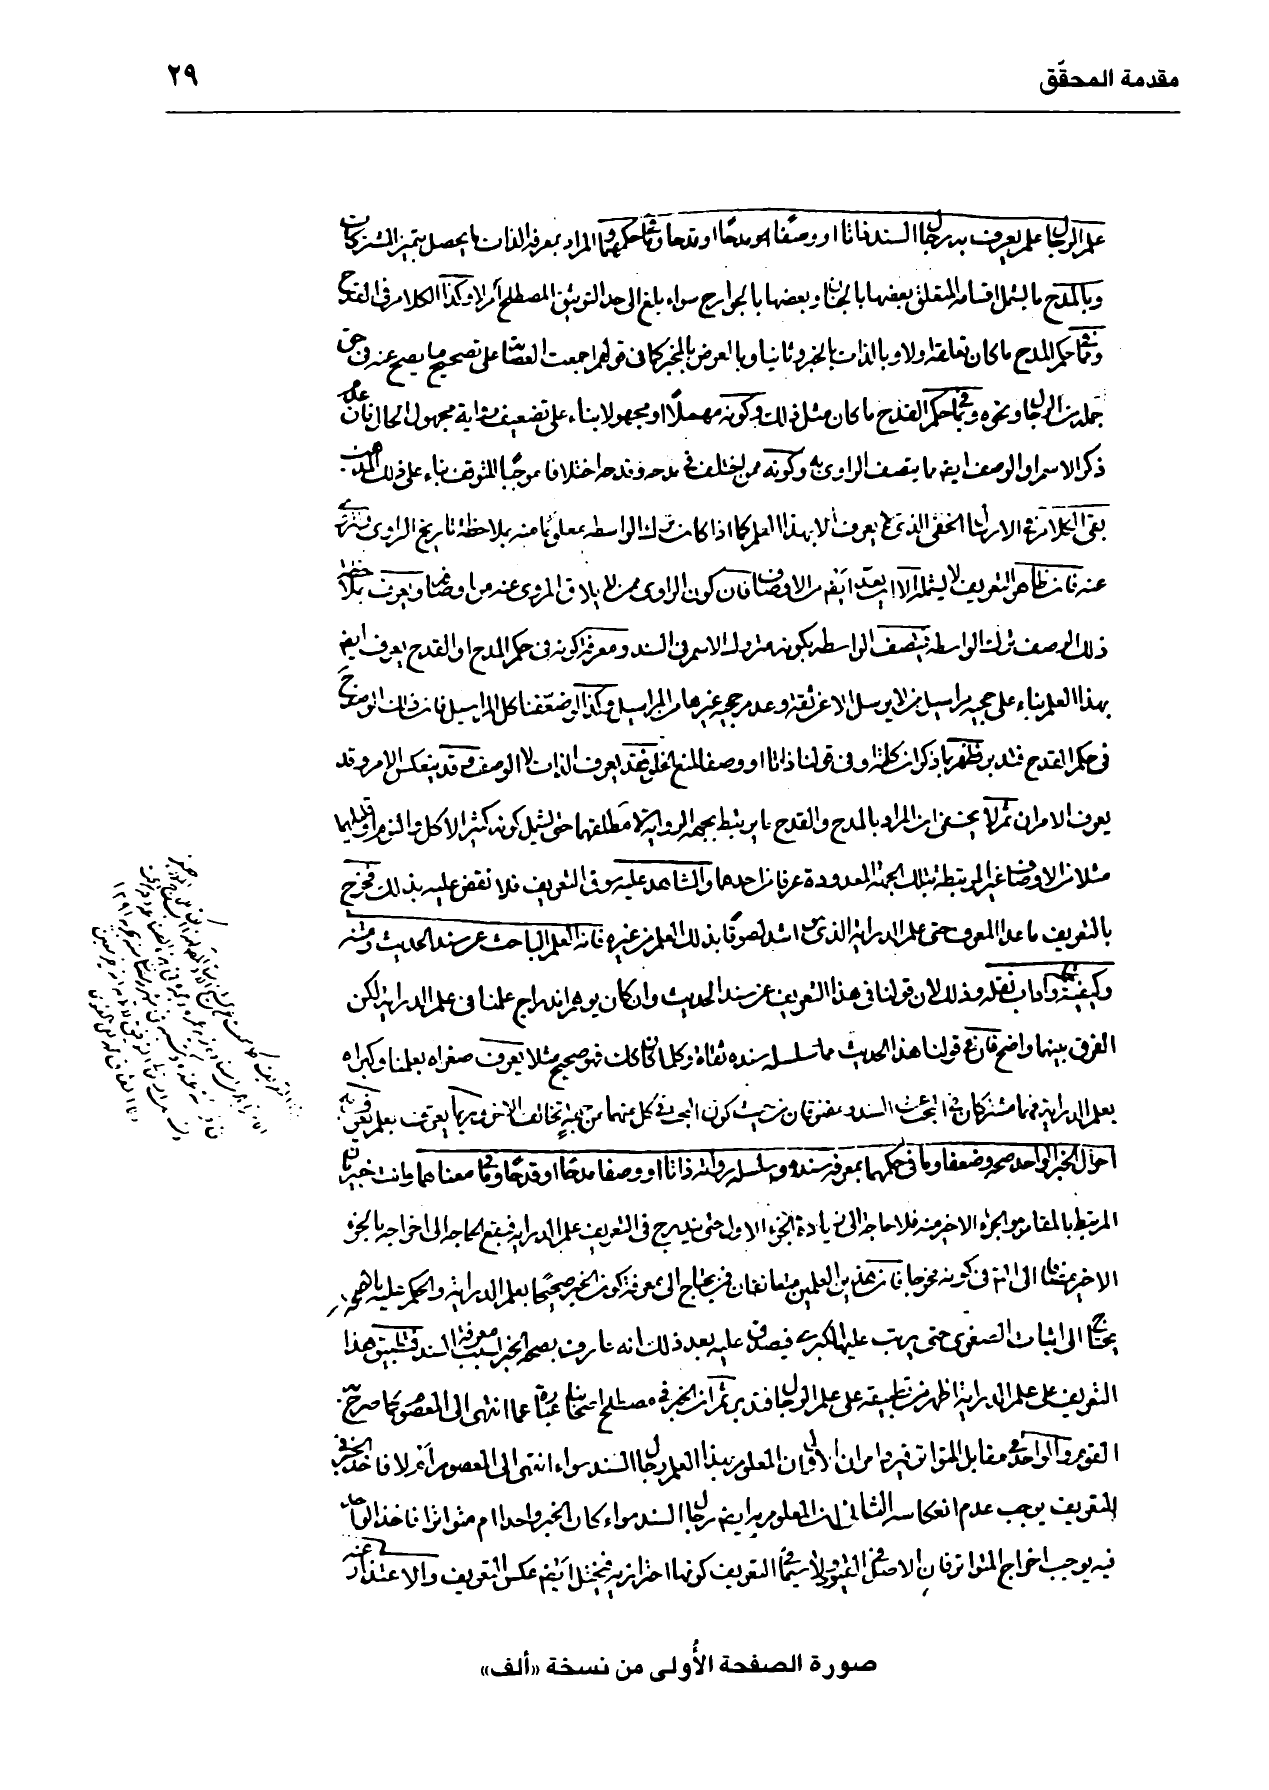 مقدمة المحقّق ٢٩
علم الرجال علم يعرف به رجال السند ذاتا او وصفًا مدحًا او قدحا وما فى حكمهما والمراد بمعرفة الذات ما يحصل بتميز المشتركات
وبالمدح ما يشمل اقسامه المتعلق بعضها بالجنان وبعضها بالجوارح سواء بلغ الى حد التوثيق المصطلح ام لا وكذا الكلام فى القدح
وبما فى حكم المدح ما كان تعلقه اولا وبالذات بالخبر وثانيا وبالعرض بالمخبر كما فى قولهم اجمعت العصابة على تصحيح ما يصح عنه فى حق
جملة من الرجال ونحوه وبما فى حكم القدح ما كان مثل ذلك وكونه مهملًا او مجهولا بناء على تضعيف رواية مجهول الحال فان عدم
ذكر الاسم او الوصف ايضا مما يتصف الراوى به وكونه ممن اختلف فى مدحه وقدحه اختلافا موجبًا للتوقف بناء على ذلك
بقى الكلام فى الارسال الخفى الذى لا يعرف الا بهذا العلم كما اذا كان ترك الواسطة معلومًا منه بملاحظة تاريخ الراوى ومن روى
عنه فان ظاهر التعريف لا يشمله الا ان يعد ايضا من الاوصاف فان كون الراوى ممن لم يلاق المروى عنه من اوصافه ويعرف بملاحظة
ذلك الوصف ترك الواسطة فيتصف الواسطة بكونه متروك الاسم فى السند ومعرفة كونه فى حكم المدح او القدح يعرف ايضا
بهذا العلم بناء على حجية مراسيل من لا يرسل الا عن ثقة وعدم حجية غيرها من المراسيل وكذا لو ضعفنا كل المراسيل فان ذلك الوصف ح
فى حكم القدح فتدبر وظهر بما ذكر ان كلمة او فى قولنا ذاتا او وصفا لمنع الخلو فقد يعرف الذات لا الوصف وقد ينعكس الامر وقد
يعرف الامران ثم لا يخفى ان المراد بالمدح والقدح ما يرتبط بجهة الرواية لا مطلقهما حتى يشمل كونه كثير الاكل والنوم او قليلهما
مثلا من الاوصاف الغير المرتبطة بتلك الجهة المعدودة عرفا من احدهما والشاهد عليه سوق التعريف فلا نقض عليه بذلك فخرج
بالتعريف ما عدا المعرف حتى علم الدراية الذى هو اشد لصوقًا بذلك العلم من غيره فانه العلم الباحث عن سند الحديث ومتنه
وكيفيته واداب نقله وذلك لان قولنا فى هذا التعريف عن سند الحديث وان كان يوهم اندراج علمنا فى علم الدراية لكن
الفرق بينهما واضح فان فى قولنا هذا الحديث مما تسلسل سنده ثقاة وكلما كان كك فهو صحيح مثلا يعرف صغراه بعلمنا وكبراه
بعلم الدراية فهما مشتركان فى البحث عن السند ومفترقان من حيث كون البحث فى كل منهما من جهة تخالف الاخرى وربما يعرف بعلم يعرف به
احوال الخبر الواحد صحة وضعفا وما فى حكمهما بمعرفة سنده وسلسلة رواته ذاتا او وصفا مدحًا او قدحًا وما فى معناهما وانت خبير بان
المرتبط بالمقام هو الجزء الاخير منه فلا حاجة الى زيادة الجزء الاول حتى يندرج فى التعريف علم الدراية فيقع الحاجة الى اخراجه بالجزء
الاخير مضافا الى انه فى كونه مخرجا فان هذين العلمين متعانقان فمن يحتاج الى معرفة كون الخبر صحيحًا بعلم الدراية والحكم عليه بانه
يحتاج الى اثبات الصغرى حتى يرتب عليها الكبرى فيصدق عليه بعد ذلك انه عارف بصحة الخبر بسبب معرفة السند فتطبيق هذا
التعريف على علم الدراية اظهر من تطبيقه على علم الرجال فتدبر ثم ان الخبر فى مصطلح اصحابنا عبارة عما انتهى الى المعصوم كما صرح به
القوم والواحد فى مقابل المتواتر فيرد امران الاول ان المعلوم بهذا العلم رجال السند سواء انتهى الى المعصوم ام لا فاخذ الخبر فى
التعريف يوجب عدم انعكاسه الثانى ان المعلوم به ايضا رجال السند سواء كان الخبر واحدا ام متواترا فاخذ الواحد
فيه يوجب اخراج المتواتر فان الاصل فى القيود لا سيما فى التعريف كونها احترازية فيختل ايضا عكس التعريف والاعتذار عنه
صورة الصفحة الأُولى من نسخة «ألف»